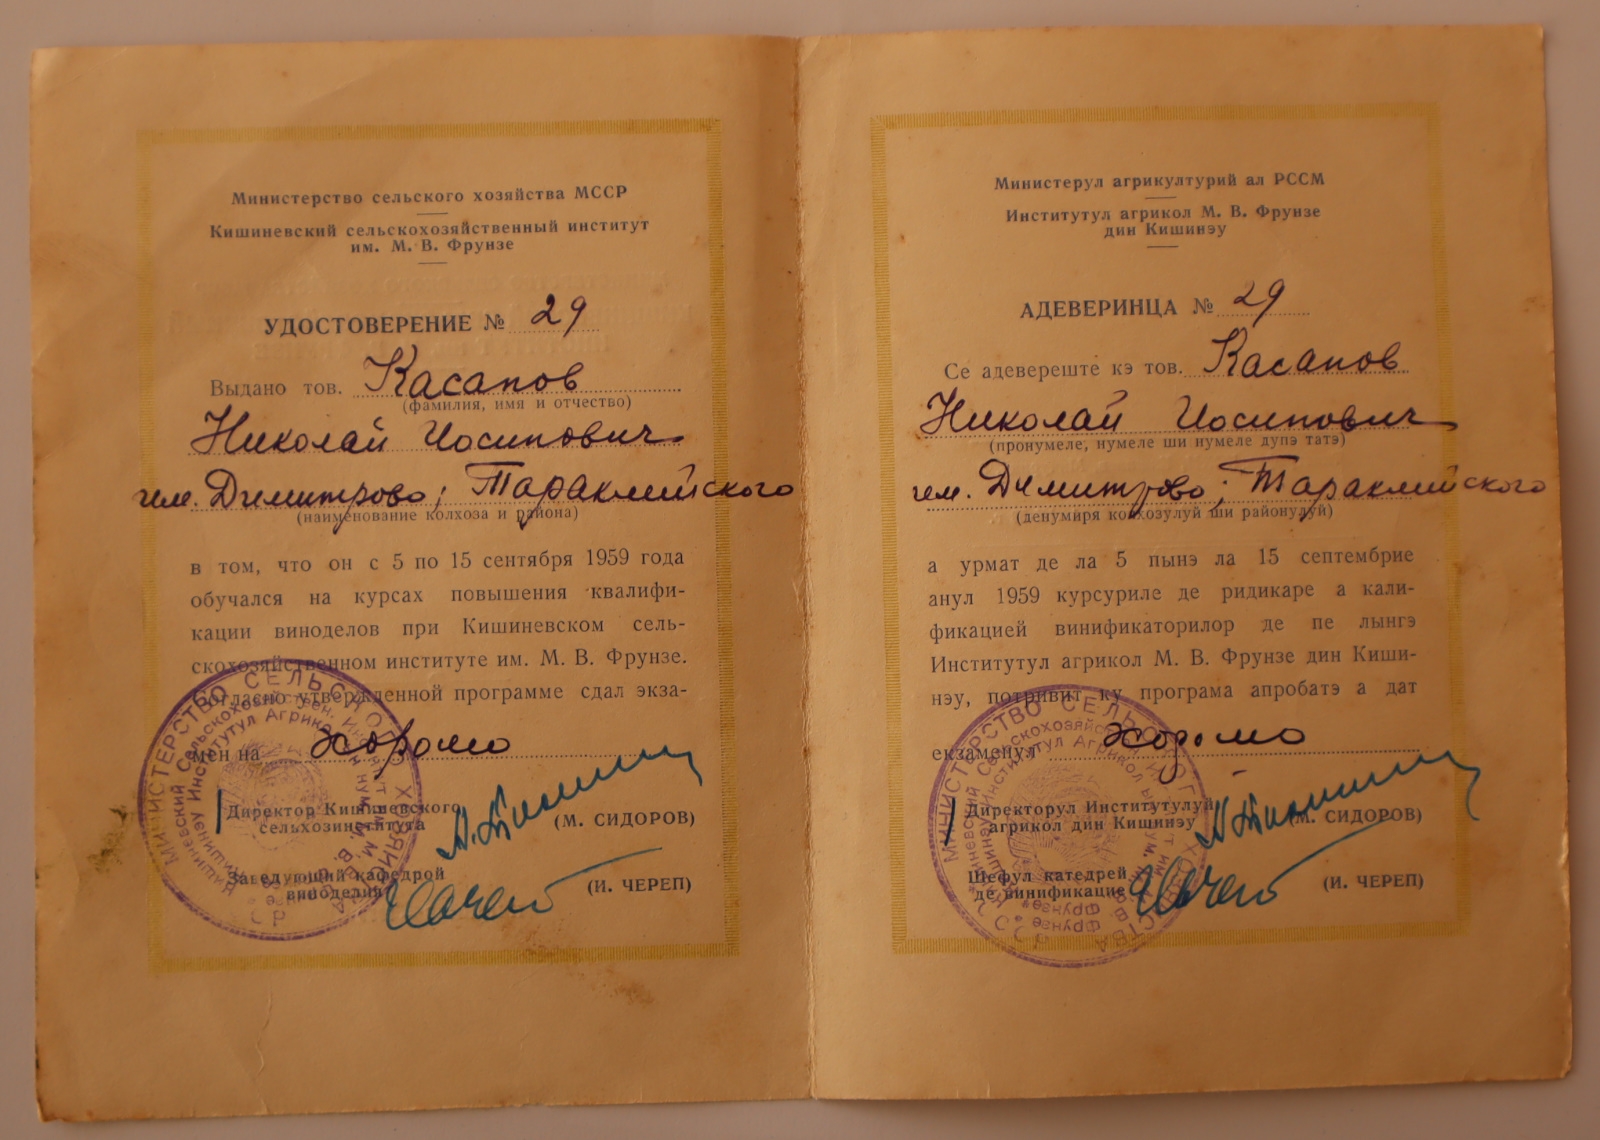 Министерство сельского хозяйства МССР
Кишиневский сельскохозяйственный институт
им. М. В. Фрунзе
УДОСТОВЕРЕНИЕ № 29
Выдано тов. Касапов
(фамилия, имя и отчество)
Николай Иосипович
им. Димитрово; Тараклийского
(наименование колхоза и района)
в том, что он с 5 по 15 сентября 1959 года
обучался на курсах повышения квалифи-
кации виноделов при Кишиневском сель-
скохозяйственном институте им. М. В. Фрунзе.
Согласно утвержденной программе сдал экза-
мен на хорошо
Директор Кишиневского
сельхозинститута
(М. СИДОРОВ)
Заведующий кафедрой
виноделия
(И. ЧЕРЕП)
МИНИСТЕРСТВО СЕЛЬСКОГО ХОЗЯЙСТВА
Кишиневский Сельскохозяйствен. Институт им. М. В. Фрунзе
Институтул Агрикол
Министерул агрикултурий ал РССМ
Институтул агрикол М. В. Фрунзе
дин Кишинэу
АДЕВЕРИНЦА № 29
Се адевереште кэ тов. Касапов
Николай Иосипович
(пронумеле, нумеле ши нумеле дупэ татэ)
им. Димитрово; Тараклийского
(денумиря колхозулуй ши районулуй)
а урмат де ла 5 пынэ ла 15 септембрие
анул 1959 курсуриле де ридикаре а кали-
фикацией винификаторилор де пе лынгэ
Институтул агрикол М. В. Фрунзе дин Киши-
нэу, потривит ку програма апробатэ а дат
екзаменул хорошо
Директорул Институтулуй
агрикол дин Кишинэу
(М. СИДОРОВ)
Шефул катедрей
де винификацие
(И. ЧЕРЕП)
МИНИСТЕРСТВО СЕЛЬСКОГО ХОЗЯЙСТВА
Институтул Агрикол